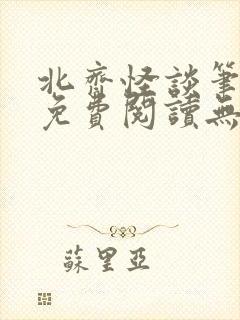 北齋怪談筆
免費閱讀無
蘇里亞